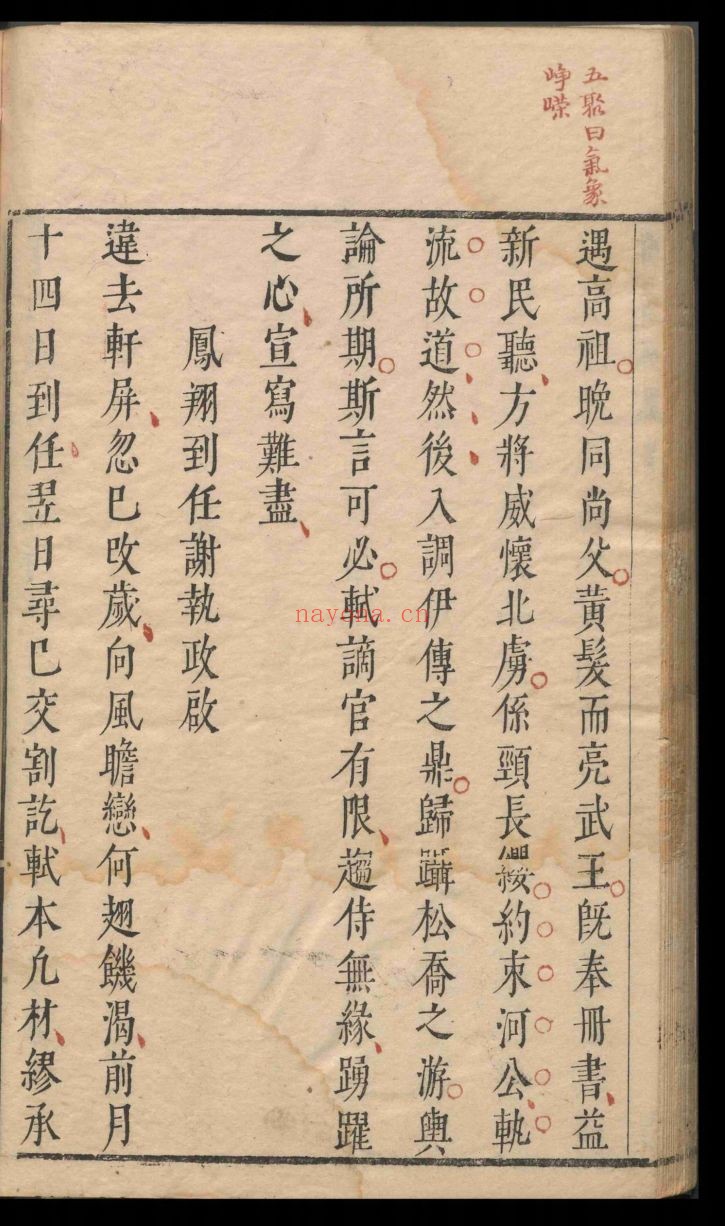 五聚曰氣象
崢嶸
遇高祖晚同尚父黃髮而亮武王既奉冊書益
新民聽方將威懷北虜係頸長纓約束河公軌
流故道然後入調伊傳之鼎歸躡松喬之游輿
論所期斯言可必軾謫官有限趨侍無緣踴躍
之心宣寫難盡
鳳翔到任謝執政啟
違去軒屏忽已改歲向風瞻戀何翅饑渴前月
十四日到任翌日尋已交割訖軾本凢材繆承
nayona.cn